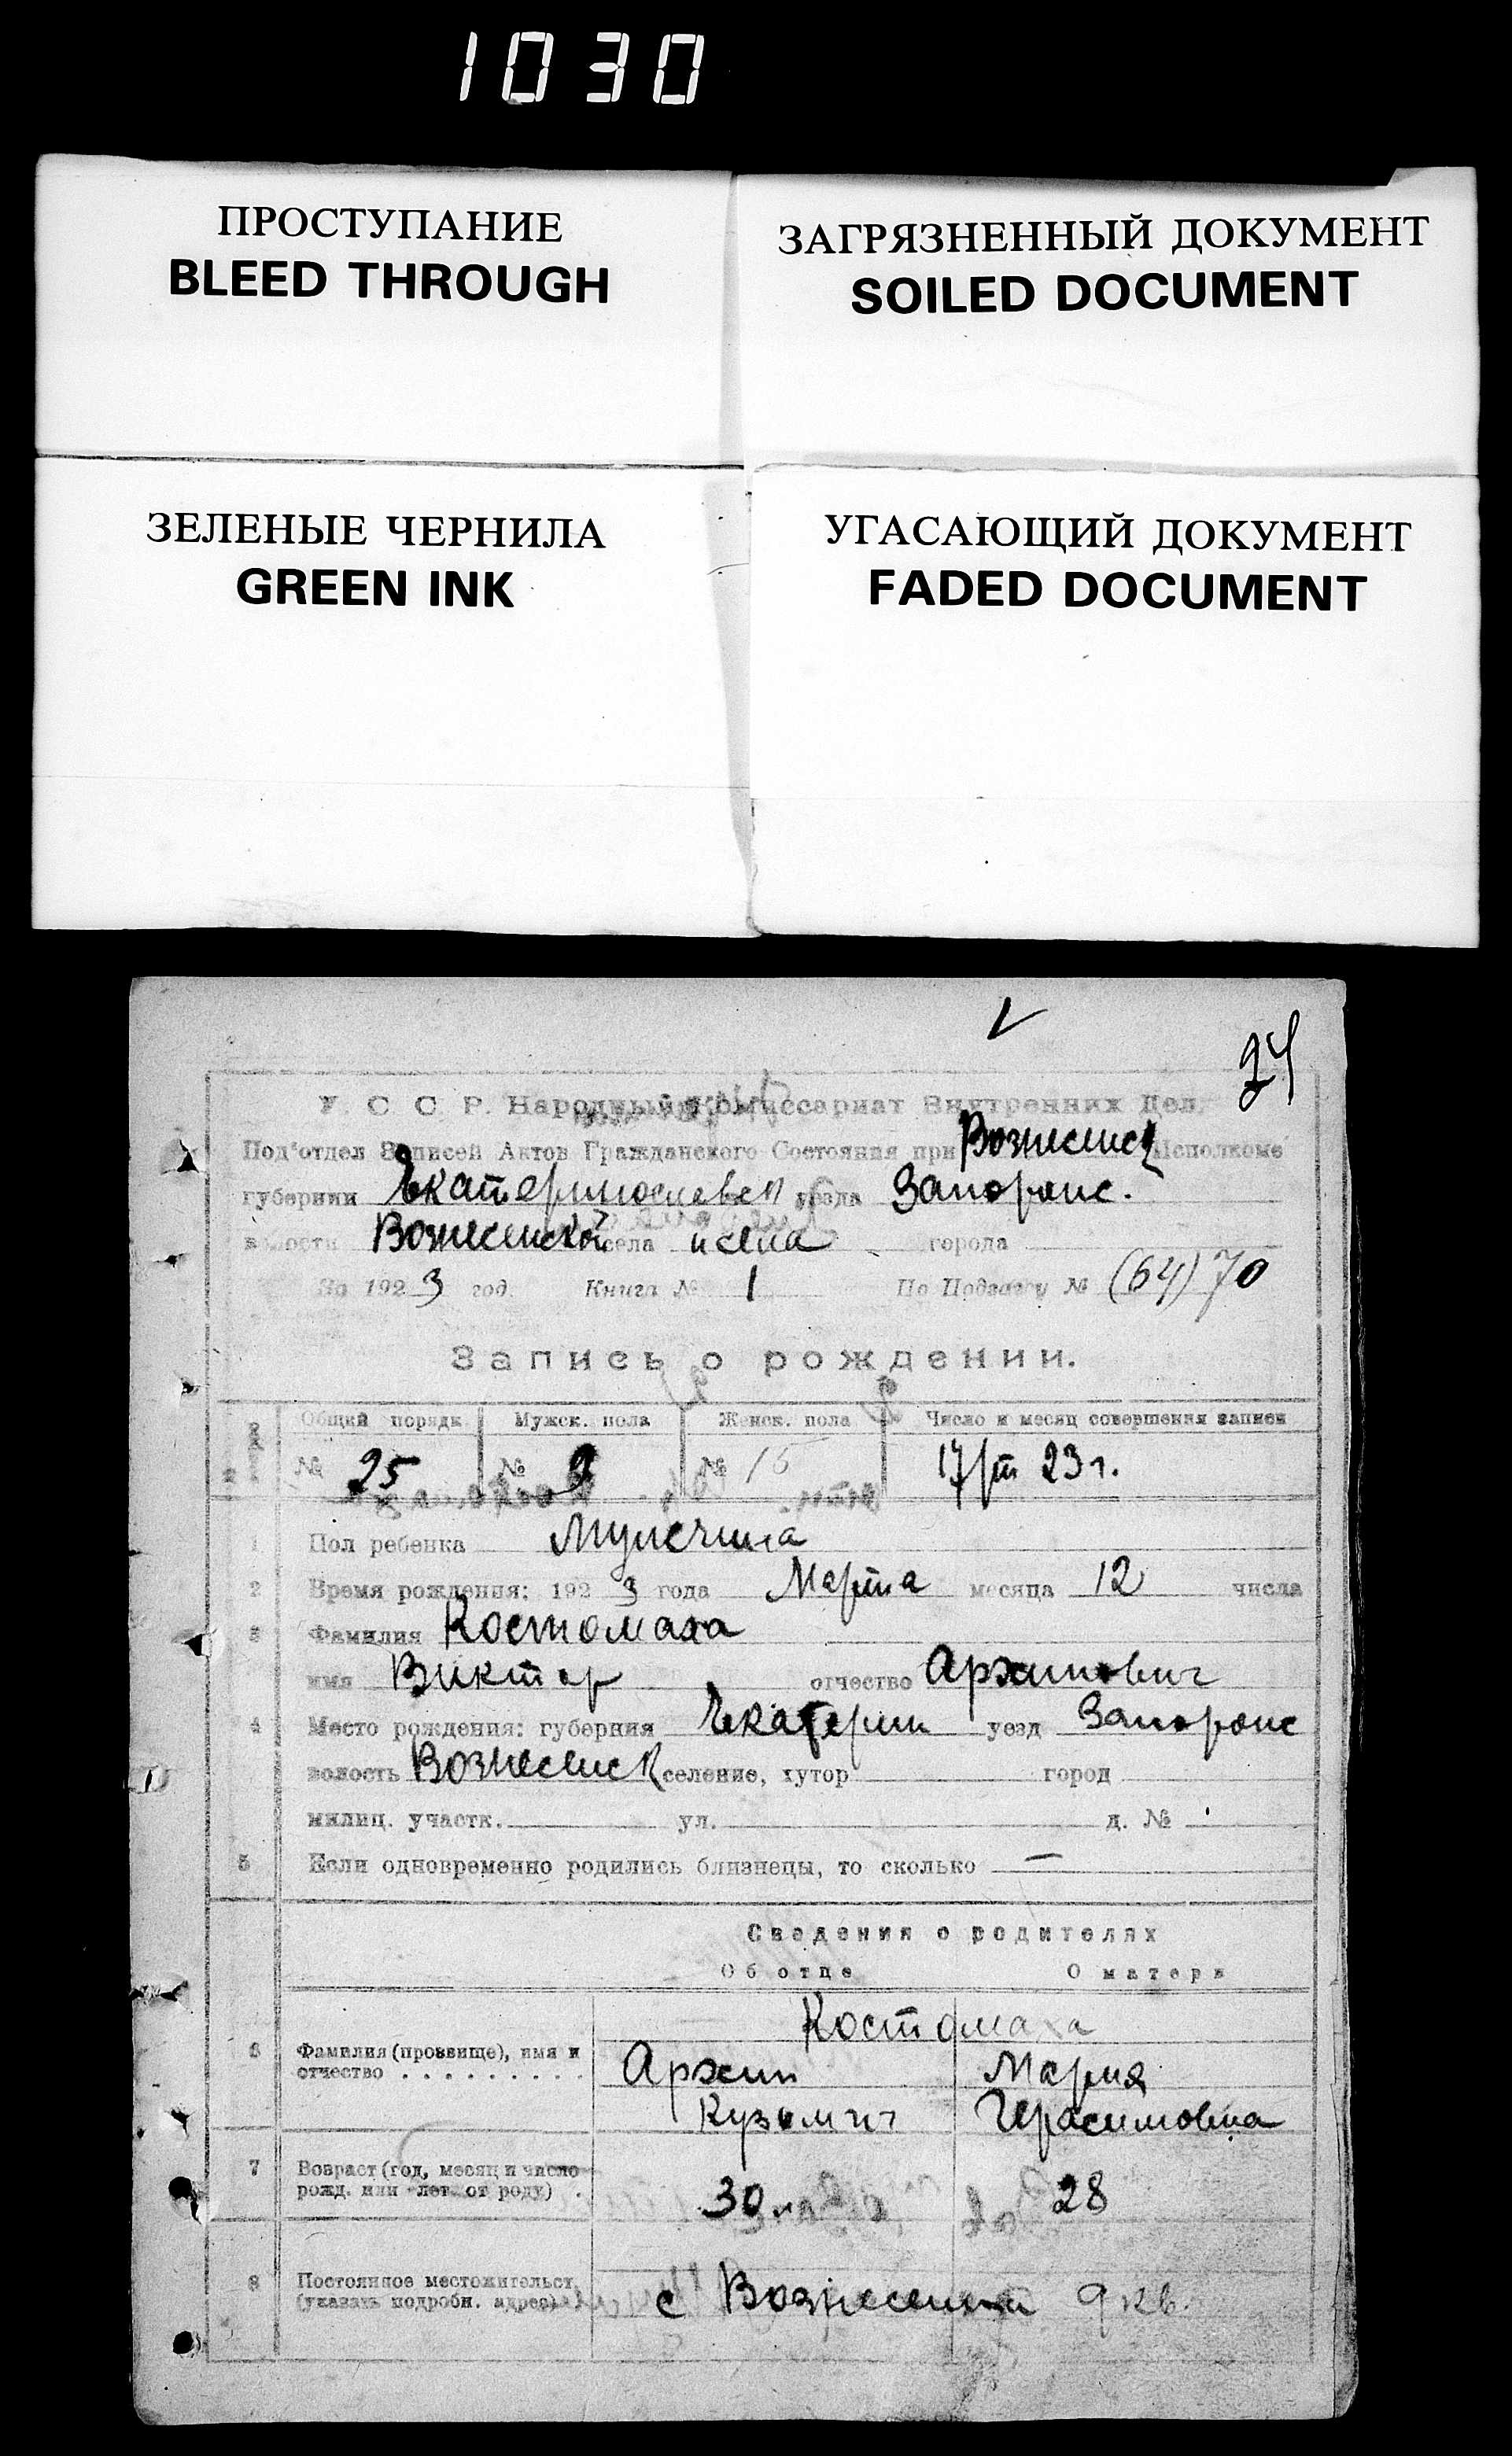 1030
ПРОСТУПАНИЕ
BLEED THROUGH
ЗАГРЯЗНЕННЫЙ ДОКУМЕНТ
SOILED DOCUMENT
ЗЕЛЕНЫЕ ЧЕРНИЛА
GREEN INK
УГАСАЮЩИЙ ДОКУМЕНТ
FADED DOCUMENT
24
У. С. С. Р. Народный Комиссариат Внутренних Дел.
Под'отдел Записей Актов Гражданского Состояния при Вознесенск Исполкоме
губернии Екатеринославск уезда Запорожс.
волости Вознесенской села города
За 1923 год. Книга № 1 По Подвагу № (64) 70
Запись о рождении.
Общий порядк Мужск. пола Женск. пола Число и месяц совершения записи
№ 25 № 9 № 15 17/III 23 г.
1 Пол ребенка Мужчина
2 Время рождения: 1923 года Марта месяца 12 числа
3 Фамилия Костомаха
имя Виктор отчество Архипович
4 Место рождения: губерния Екатерин уезд Запорожс
волость Вознесенск селение, хутор город
милиц. участк. ул. д. №
5 Если одновременно родились близнецы, то сколько —
Сведения о родителях
Об отце О матери
Костомаха
6 Фамилия (прозвище), имя и отчество Архип Мария
Кузьмич Герасимовна
7 Возраст (год, месяц и число рожд. или лет от роду) 30 28
8 Постоянное местожительст. (указать подробн. адрес) с Вознесенка 9 кв.